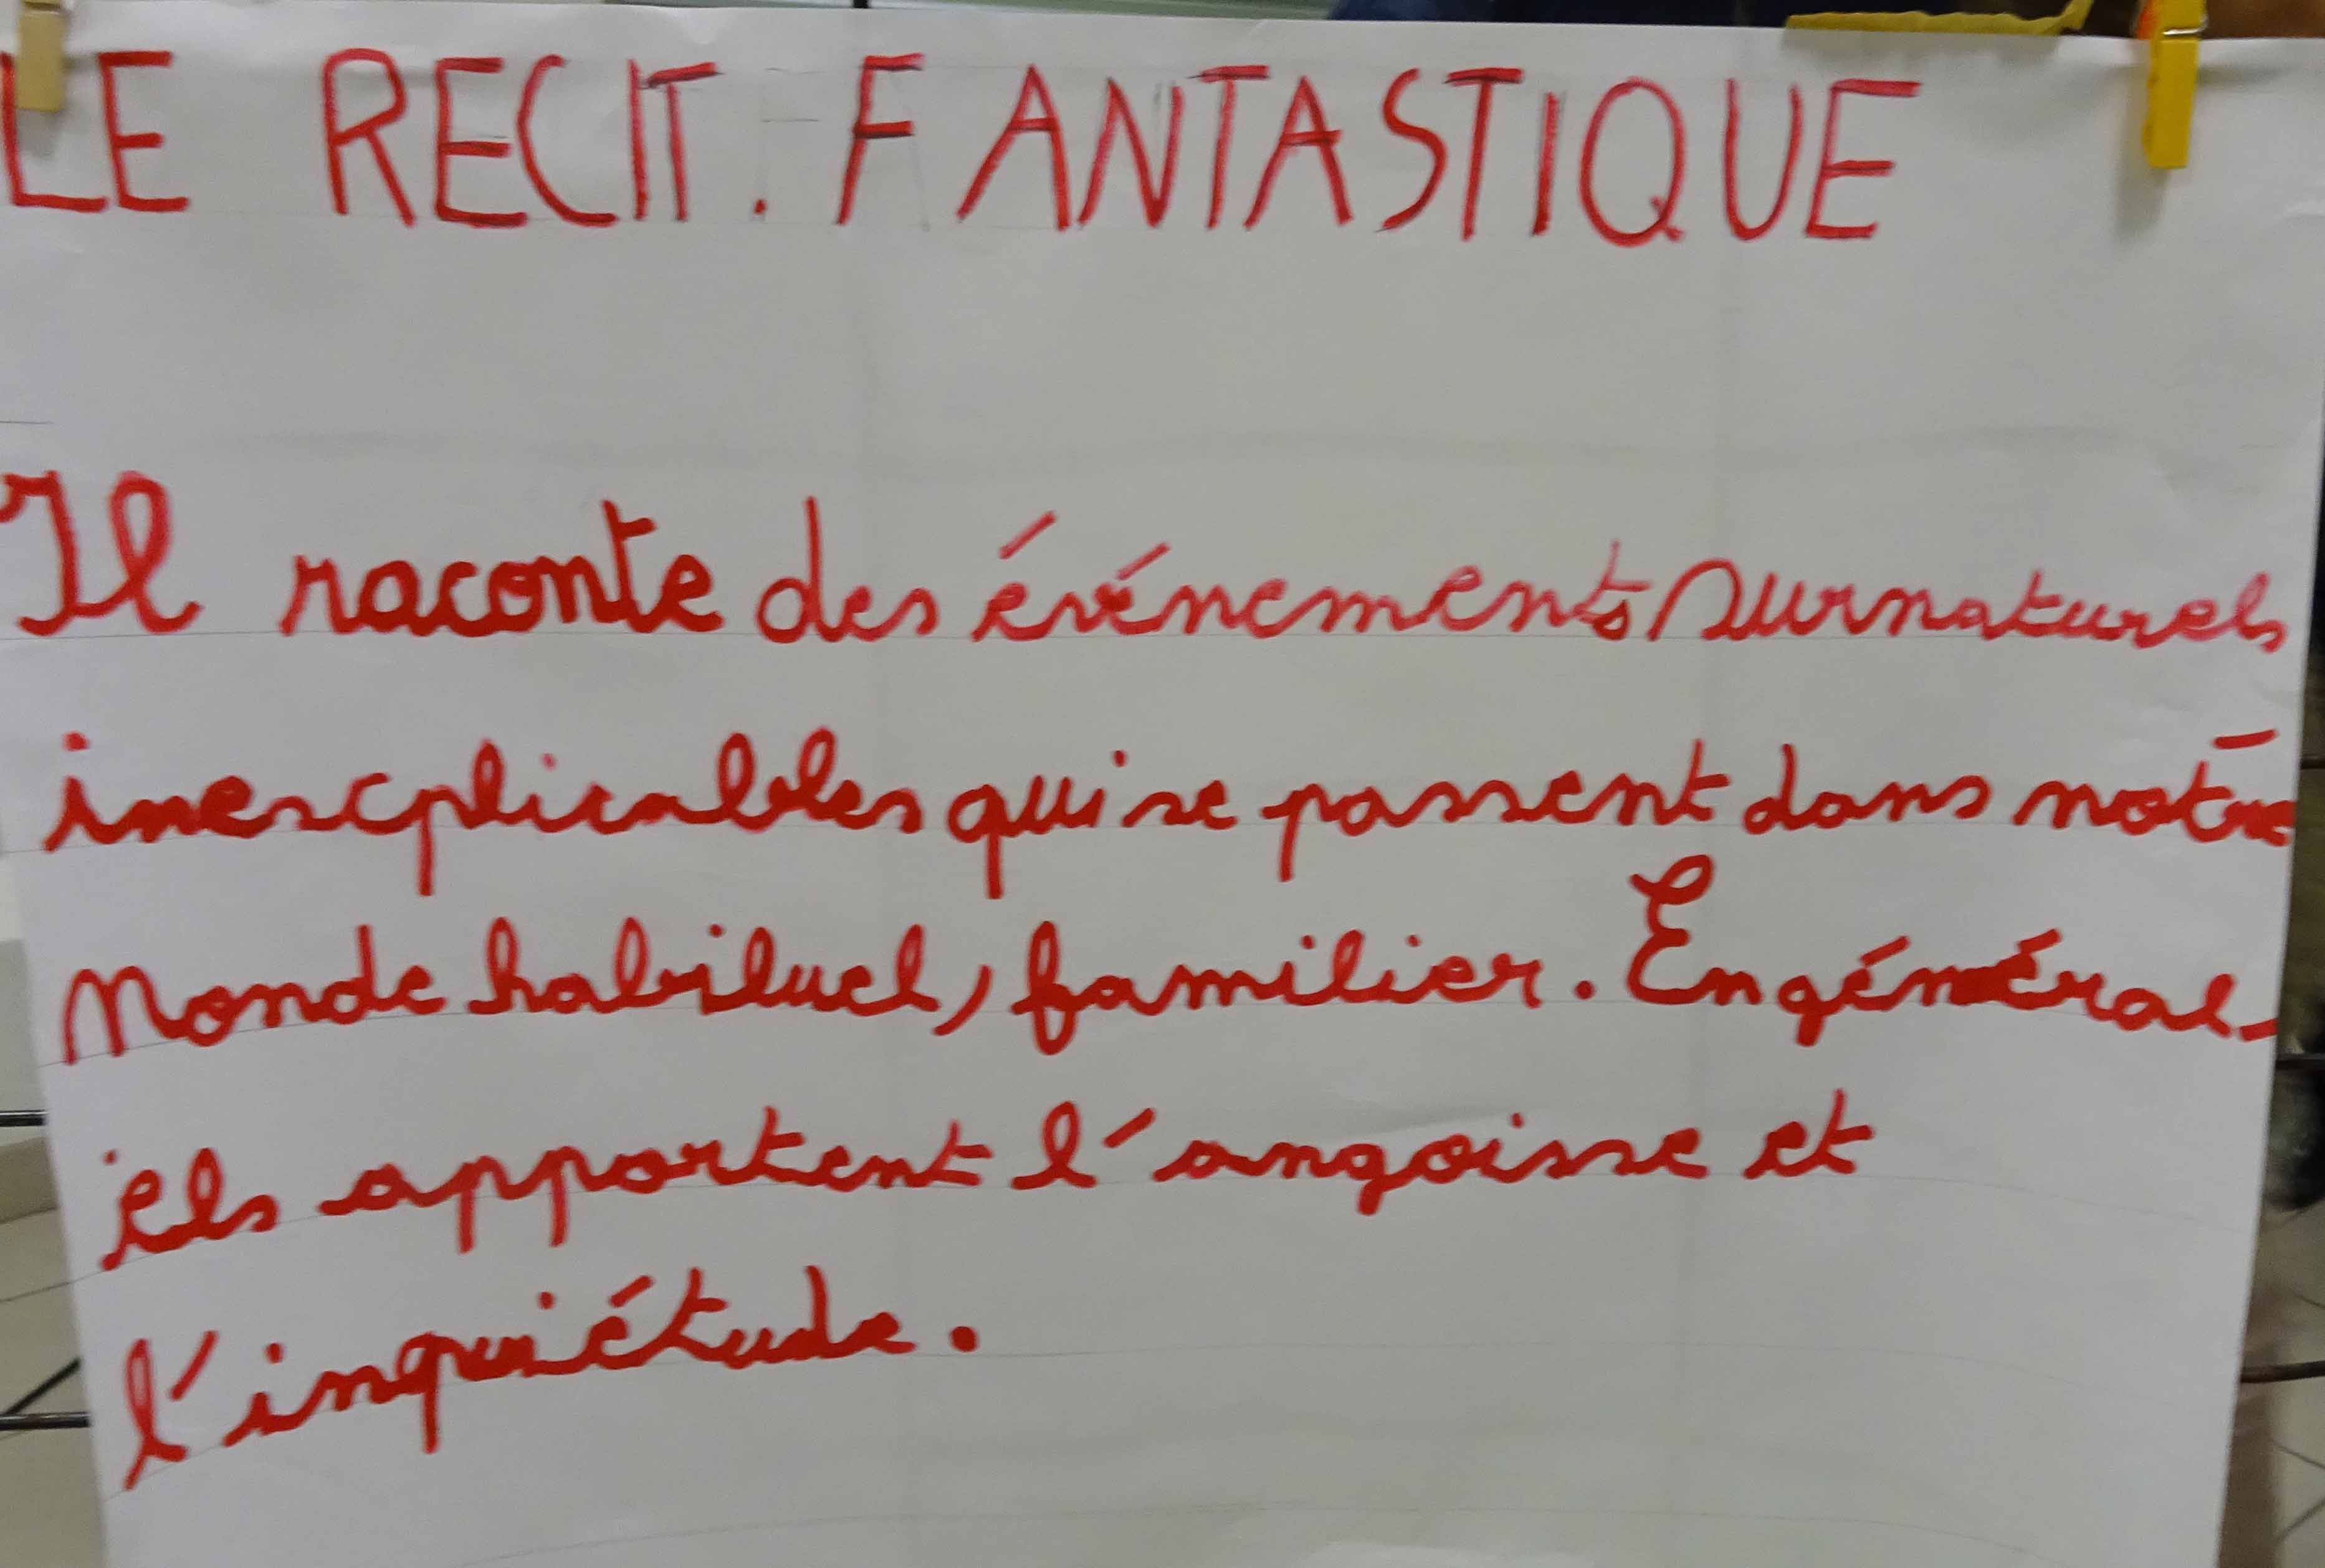 LE RECIT. FANTASTIQUE
Il raconte des événements surnaturels
inexplicables qui se passent dans notre
Monde habituel, familier. En général
ils apportent l'angoisse et
l'inquiétude.